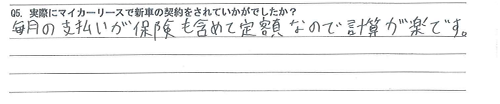 Q5. 実際にマイカーリースで新車の契約をされていかがでしたか？
毎月の支払いが保険も含めて定額なので計算が楽です。